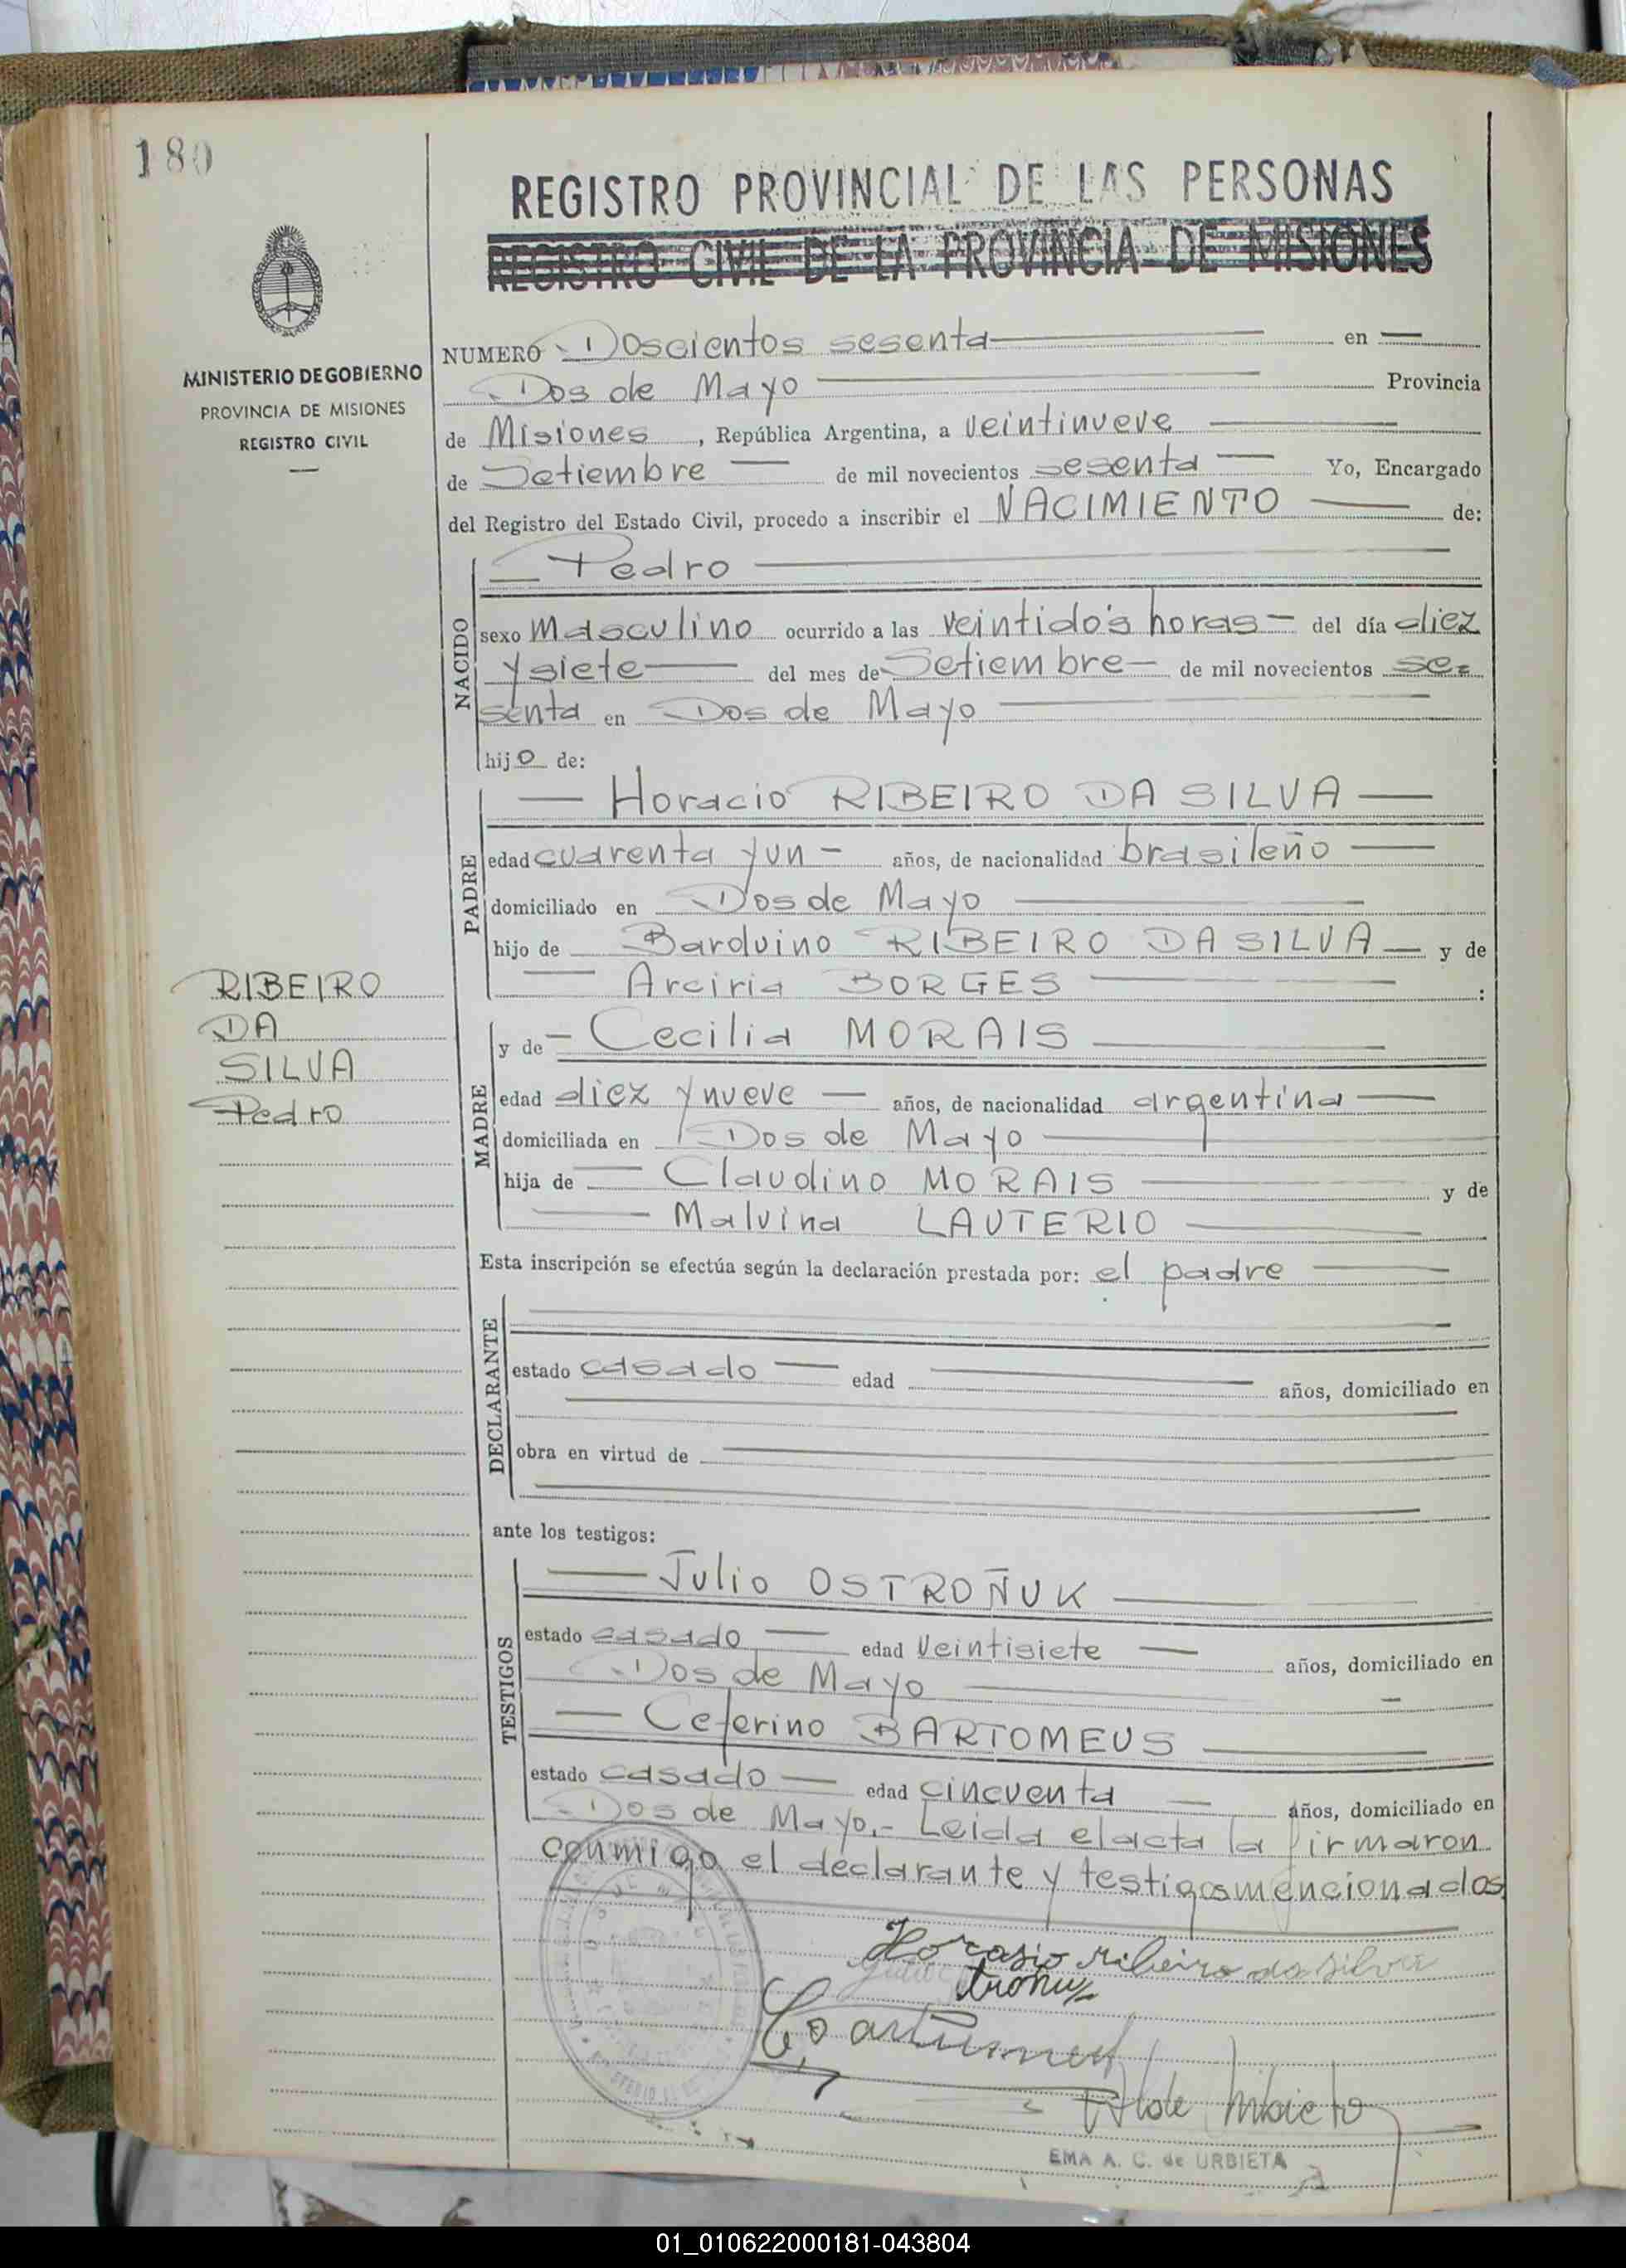 180
REGISTRO PROVINCIAL DE LAS PERSONAS
REGISTRO CIVIL DE LA PROVINCIA DE MISIONES
MINISTERIO DE GOBIERNO
PROVINCIA DE MISIONES
REGISTRO CIVIL
NUMERO Doscientos sesenta en
Dos de Mayo Provincia
de Misiones, República Argentina, a veintinueve
de Setiembre de mil novecientos sesenta Yo, Encargado
del Registro del Estado Civil, procedo a inscribir el NACIMIENTO de:
NACIDO
Pedro
sexo Masculino ocurrido a las veintidós horas del día diez
y siete del mes de Setiembre de mil novecientos se=
senta en Dos de Mayo
hijo de:
PADRE
Horacio RIBEIRO DA SILVA
edad cuarenta y un años, de nacionalidad brasileño
domiciliado en Dos de Mayo
hijo de Barduino RIBEIRO DA SILVA y de
Arciria BORGES :
RIBEIRO
DA
SILVA
Pedro
MADRE
y de Cecilia MORAIS
edad diez y nueve años, de nacionalidad argentina
domiciliada en Dos de Mayo
hija de Claudino MORAIS y de
Malvina LAUTERIO
Esta inscripción se efectúa según la declaración prestada por: el padre
DECLARANTE
estado casado edad años, domiciliado en
obra en virtud de
ante los testigos:
TESTIGOS
Julio OSTROÑUK
estado casado edad veintisiete años, domiciliado en
Dos de Mayo
Ceferino BARTOMEUS
estado casado edad cincuenta años, domiciliado en
Dos de Mayo.- Leida el acta la firmaron
conmigo el declarante y testigos mencionados
Horasio ribeiro da silva
EMA A. C. de URBIETA
01_010622000181-043804